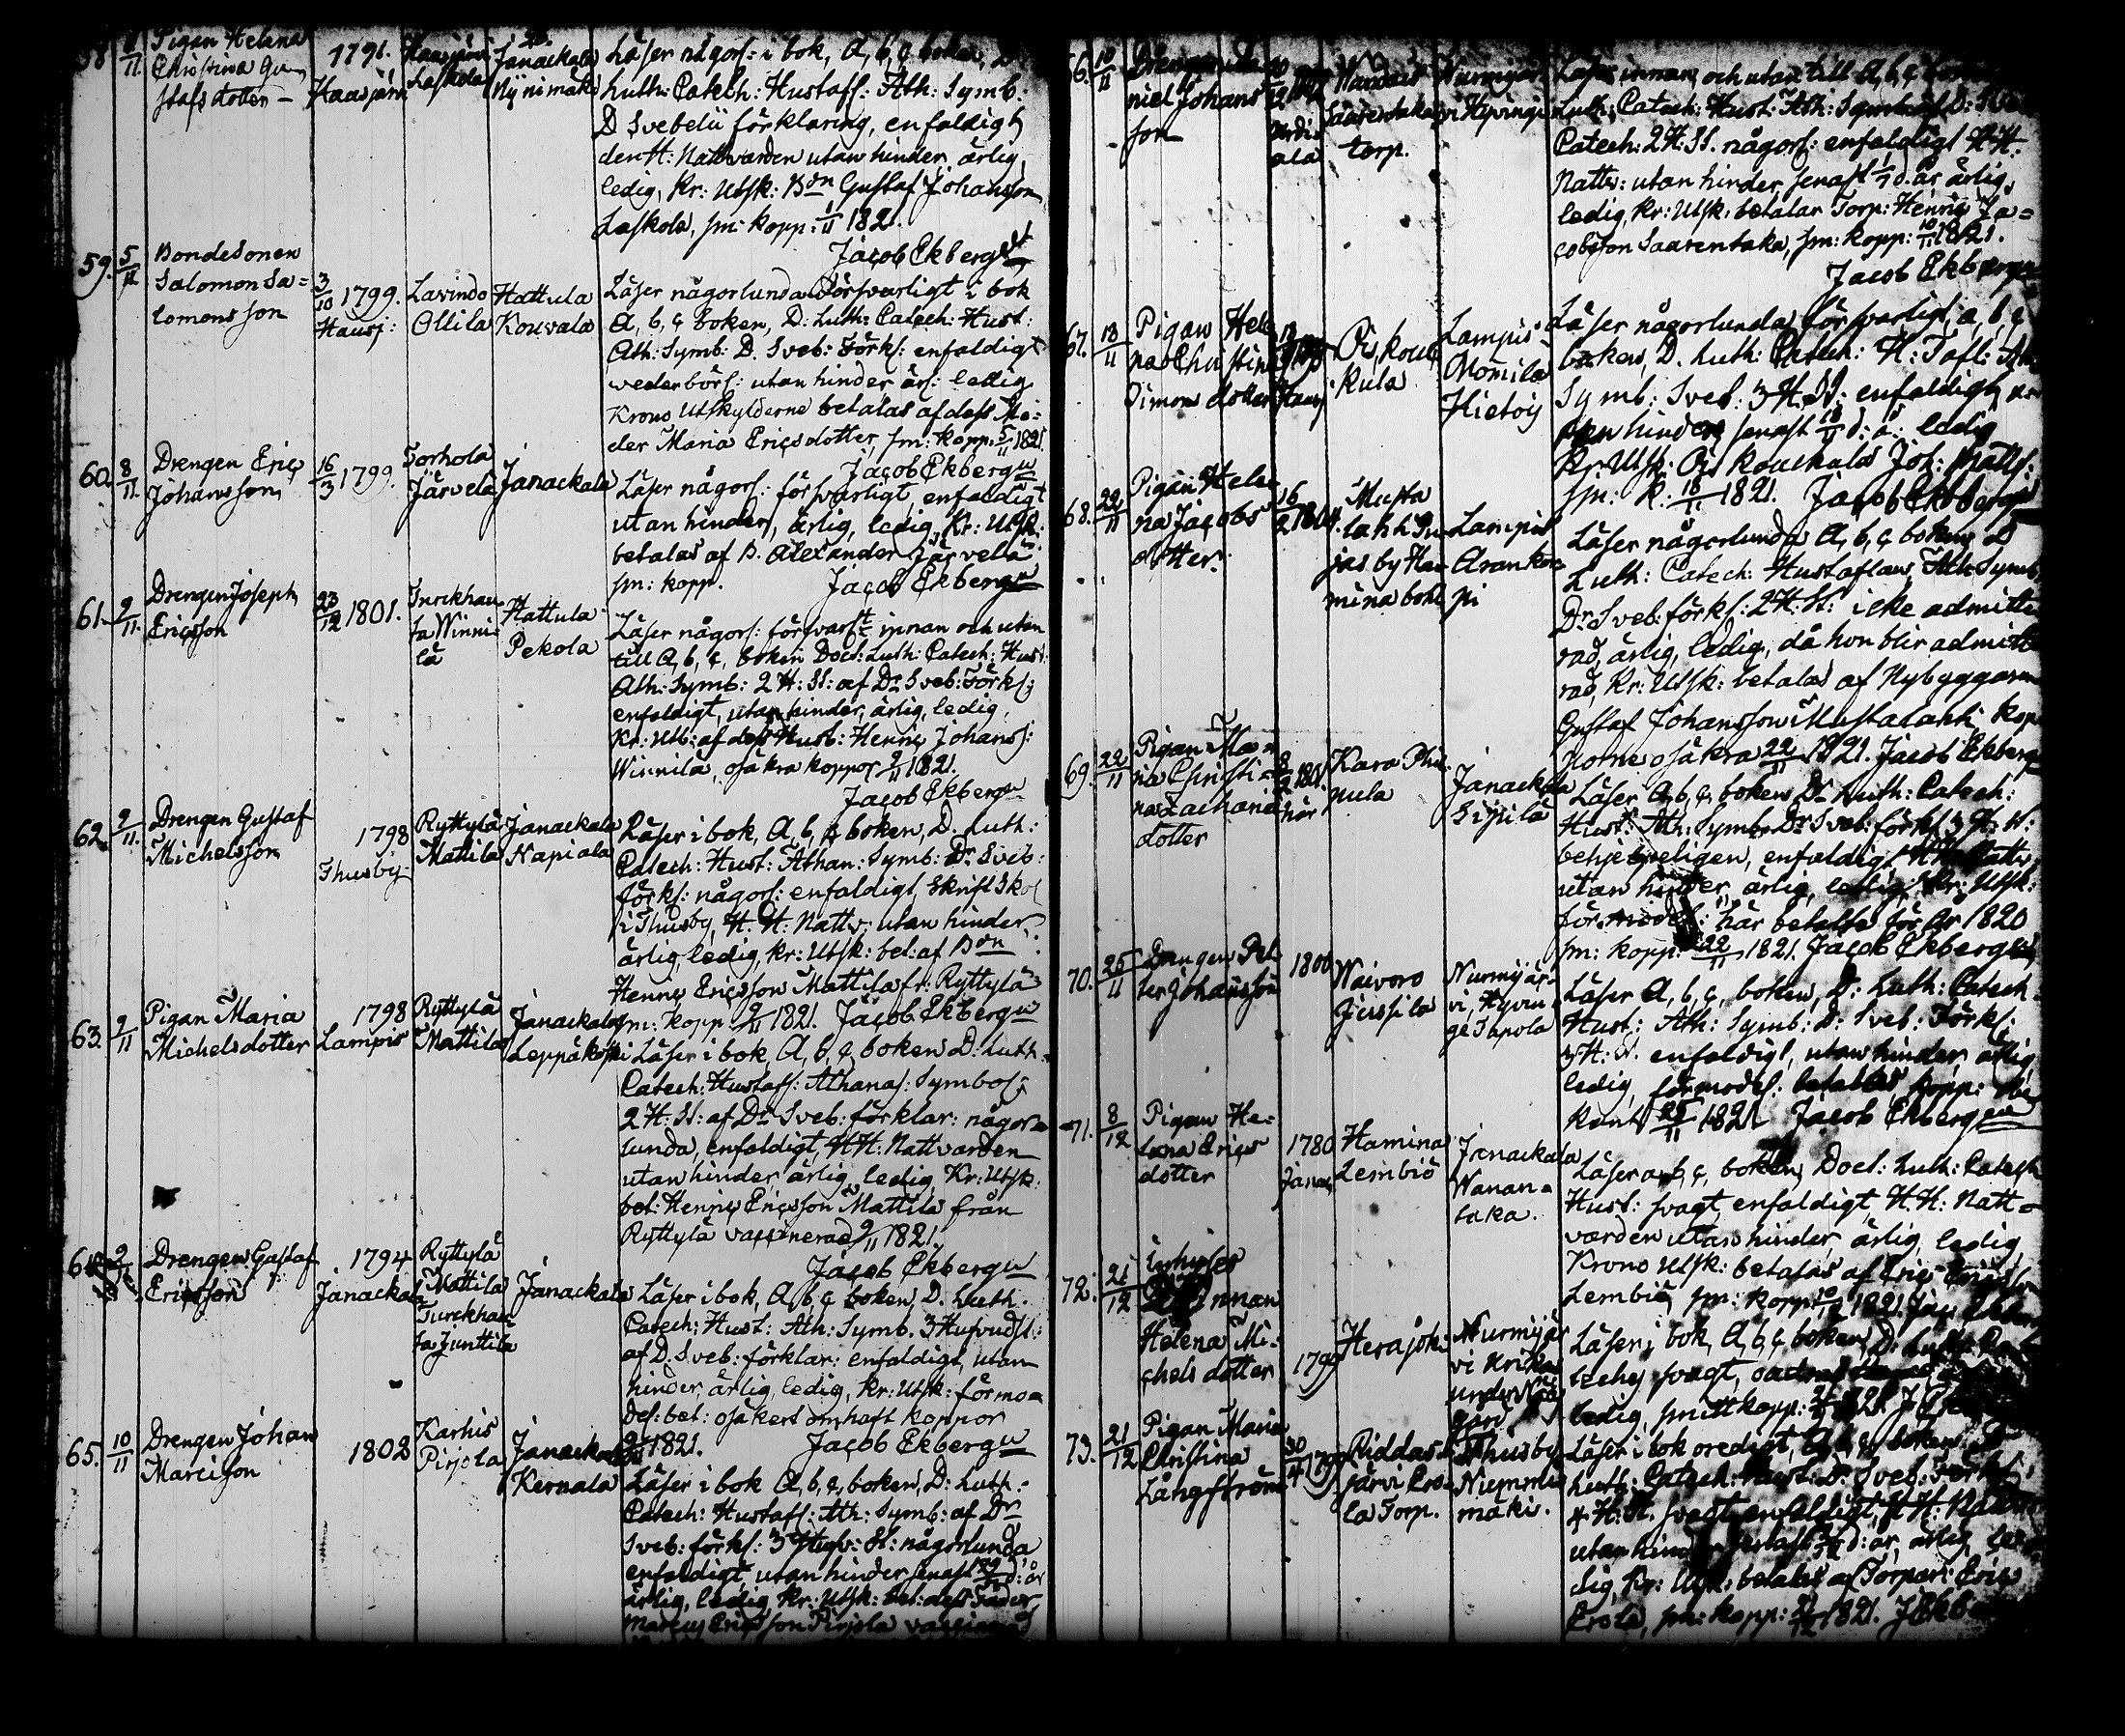 58 11 Pigan Helena
Christina Gu-
stafs dotter –
1791.
Haasjärvi
Laskola
Janackala
Nyinimäki
Läser någorl: i bok, A, b, c boken, D
Luth: Catech: Hustafl: Ath: Symb:
D Svebelii förklaring, enfaldigt,
den H: Nattvarden utan hinder ärlig,
ledig, Kr: Utsk: Bdn Gustaf Johansson
Laskola, sm: kopp: 1/11 1821.
Jacob Ekbergh
59. 5/11 Bondesonen
Salomon Sa=
lomons son
3/10 1799.
Hausj:
Lavindo
Ollila
Hattula
Kouvala
Läser någorlunda försvarligt i bok
A, b, c boken, D: Luth: Catech: Hust:
Ath: Symb: D. Sveb: Förkl: enfaldigt
vederbörl: utan hinder ärl: ledig
Krono Utskylderne betalas af dess Mo=
der Maria Ericsdotter, sm: kopp. 5/11 1821.
Jacob Ekbergh
60. 8/11. Drengen Eric
Johansson
16/3 1799.
Torhola
Järvelä
Janackala
Läser någorl: försvarligt, enfaldigt
utan hinder, ärlig, ledig, Kr: Utsk:
betalas af B. Alexander Järvelä
sm: kopp. Jacob Ekbergh
61. 9/11. Drengen Joseph
Ericsson
23/12 1801.
Turckhau-
ta Winni-
lä
Hattula
Pekola
Läser någorl: försvarlt innan och utan
till A, b, c, boken Doct: Luth: Catech: Hust:
Ath: Symb: 2 H: St: af Dr Sveb: Förkl:
enfaldigt, utan hinder, ärlig, ledig,
Kr: Utb: af dess Husb: Henric Johans:
Winnilä, osäkra koppor 9/11 1821.
Jacob Ekbergh
62. 9/11. Drengen Gustaf
Michelsson
1798
Thusby
Ryttylä
Mattila
Janackala
Napiala
Läser i bok, A, b, c boken, D. Luth:
Catech: Hust: Athan: Symb: Dr Sveb:
förkl: någorl: enfaldigt, Skriftskol
i Thusby, H. H: Nattv: utan hinder
ärlig, ledig, Kr: Utsk: bet: af Bdn
Henric Ericsson Mattila fr: Ryttylä
sm: kopp: 9/11 1821. Jacob Ekbergh
63. 9/11 Pigan Maria
Michelsdotter
1798
Lampis
Ryttylä
Mattila
Janackala
Leppäkoski
Läser i bok, A, b, c, boken D: Luth:
Catech: Hustafl: Athanas: Symbol:
2 H: St: af Dr Sveb: förklar: någor=
lunda, enfaldigt, H H: Nattvarden
utan hinder, ärlig, ledig, Kr: Utsk:
bet: Henric Ericsson Mattila från
Ryttylä vaccinerad 9/11 1821.
Jacob Ekbergh
64 9/11 Drengen Gustaf
Ericsson
1794
Janackala
Ryttylä
Mattila
Turckhau-
ta Junttila
Janackala
Läser i bok, A, b, c boken, D. Luth.
Catech: Hust: Ath: Symb. 3 Hufvudst:
af D. Sveb: förklar: enfaldigt, utan
hinder, ärlig, ledig, Kr: Utsk: förmo=
del: bet: osäkert om haft koppor
9/11 1821. Jacob Ekbergh
65. 10/11 Drengen Johan
Marcison
1802
Karhis
Pirjola
Janackala
Kernala
Läser i bok A, b, c, boken, D: Luth:
Catech: Hustafl: Ath: Symb: af Dr
Sveb: förkl: 3 Hufv: St: någorlunda
enfaldigt, utan hinder senast d: år
ärlig, ledig, Kr: Utsk: bet: dess Fader
Marcus Ericsson Pirjola
66. 10/11 Drengen Da-
niel Johans
son
Saarentaka
torp.
Nurmijär-
vi Hyvinge
Läser innan och utan till A, b, c
Luth: Catech: Hust: Ath: Symb: af D: Sveb
Catech: 2 H: St. någorl: enfaldigt H H.
Nattv: utan hinder senast d. år ärlig,
ledig, Kr: Utsk: betalar Torp: Henric Ja=
cobsson Saarentaka, sm: kopp: 10/11 1821.
Jacob Ekbergh
67. 18/11 Pigan Hele
na Christina
Simons dotter
Lampis
Momila
Hietoij
Läser någorlunda försvarligt, a, b, c
boken, D. Luth: Catech: H: Tafl: Ath
Symb: Sveb: 3 H. St: enfaldigt,
utan hinder senast 18/11 d: å: ledig
Kr: Utsk: Joh: Matts:
sm: k: 18/11 1821. Jacob Ekbergh
68. 22/11 Pigan Hele
na Jacobs
dotter.
16/2 1804.
Musta
lahti
jas by Ha-
mina bohl
Lampis
Läser någorlunda A, b, c boken D
Luth: Catech: Hustaflan, Ath Symb
Dr Sveb: förkl: 2 H: St: icke admitte
rad, ärlig, ledig, då hon blir admitte
rad, Kr: Utsk: betalas af Nybyggaren
Gustaf Johansson Mustalahti kop
porne osäkra 22/11 1821. Jacob Ekbergh
69. 22/11 Pigan Ma-
ria Christi-
na Zacharia
dotter
1801.
här
Kara
Janackala
Sipilä
Läser A, b, c boken Dr Luth: Catech:
Hust: Ath: Symb: Dr Sveb: förkl 3 H: St:
behjelpeligen, enfaldigt H H Nattv
utan hinder, ärlig, ledig, Kr: Utsk:
förmodel: här betalte för år 1820
sm: kopp: 22/11 1821. Jacob Ekbergh
70. 25/11 Drengen Pet-
ter Johansson
1800
Waivoro
Jussila
Nurmijär-
vi, Hyvin
ge Tapola
Läser A, b, c, boken, D: Luth: Catech:
Hust: Ath: Symb: D: Sveb: Förkl:
3 H: St. enfaldigt, utan hinder, ärlig
ledig, förmodel: betalt kopp:
25/11 1821. Jacob Ekbergh
71. 8/12 Pigan He=
lena Erics
dotter
1780
Janac
Hamina
Lembiö
Janackala
Wanan=
taka.
Läser a, b, c, boken, Doct: Luth: Catech
Hust: svagt, enfaldigt, H. H: Natt=
varden utan hinder, ärlig, ledig,
Krono Utsk: betalas af Eric Ericsson
Lembiö, sm: kopp 1821.
72. 21/12 Inhyses
Qvinnan
Helena Mi-
chels dotter
1799
Herajoki
Nurmijär
vi
Läser i bok, A, b, c boken, D: Luth: Ca
teches svagt,
ledig, smittkopp: 1821. J Ekbergh
73. 21/12 Pigan Maria
Christina
Långström
Riddas-
järvi Ero-
la Torp.
Thusby
mäki.
Läser i bok oredigt, A, b, c, boken, D
Luth: Catech: Hust: Dr Sveb: Förkl:
4 H: St. svagt, enfaldigt, H H: Nattv
utan hinder senast d: år, ärlig, le
dig, Kr: Utsk: betalas af Torpar: Eric
Erola, sm: kopp: 21/12 1821. J Ekbergh